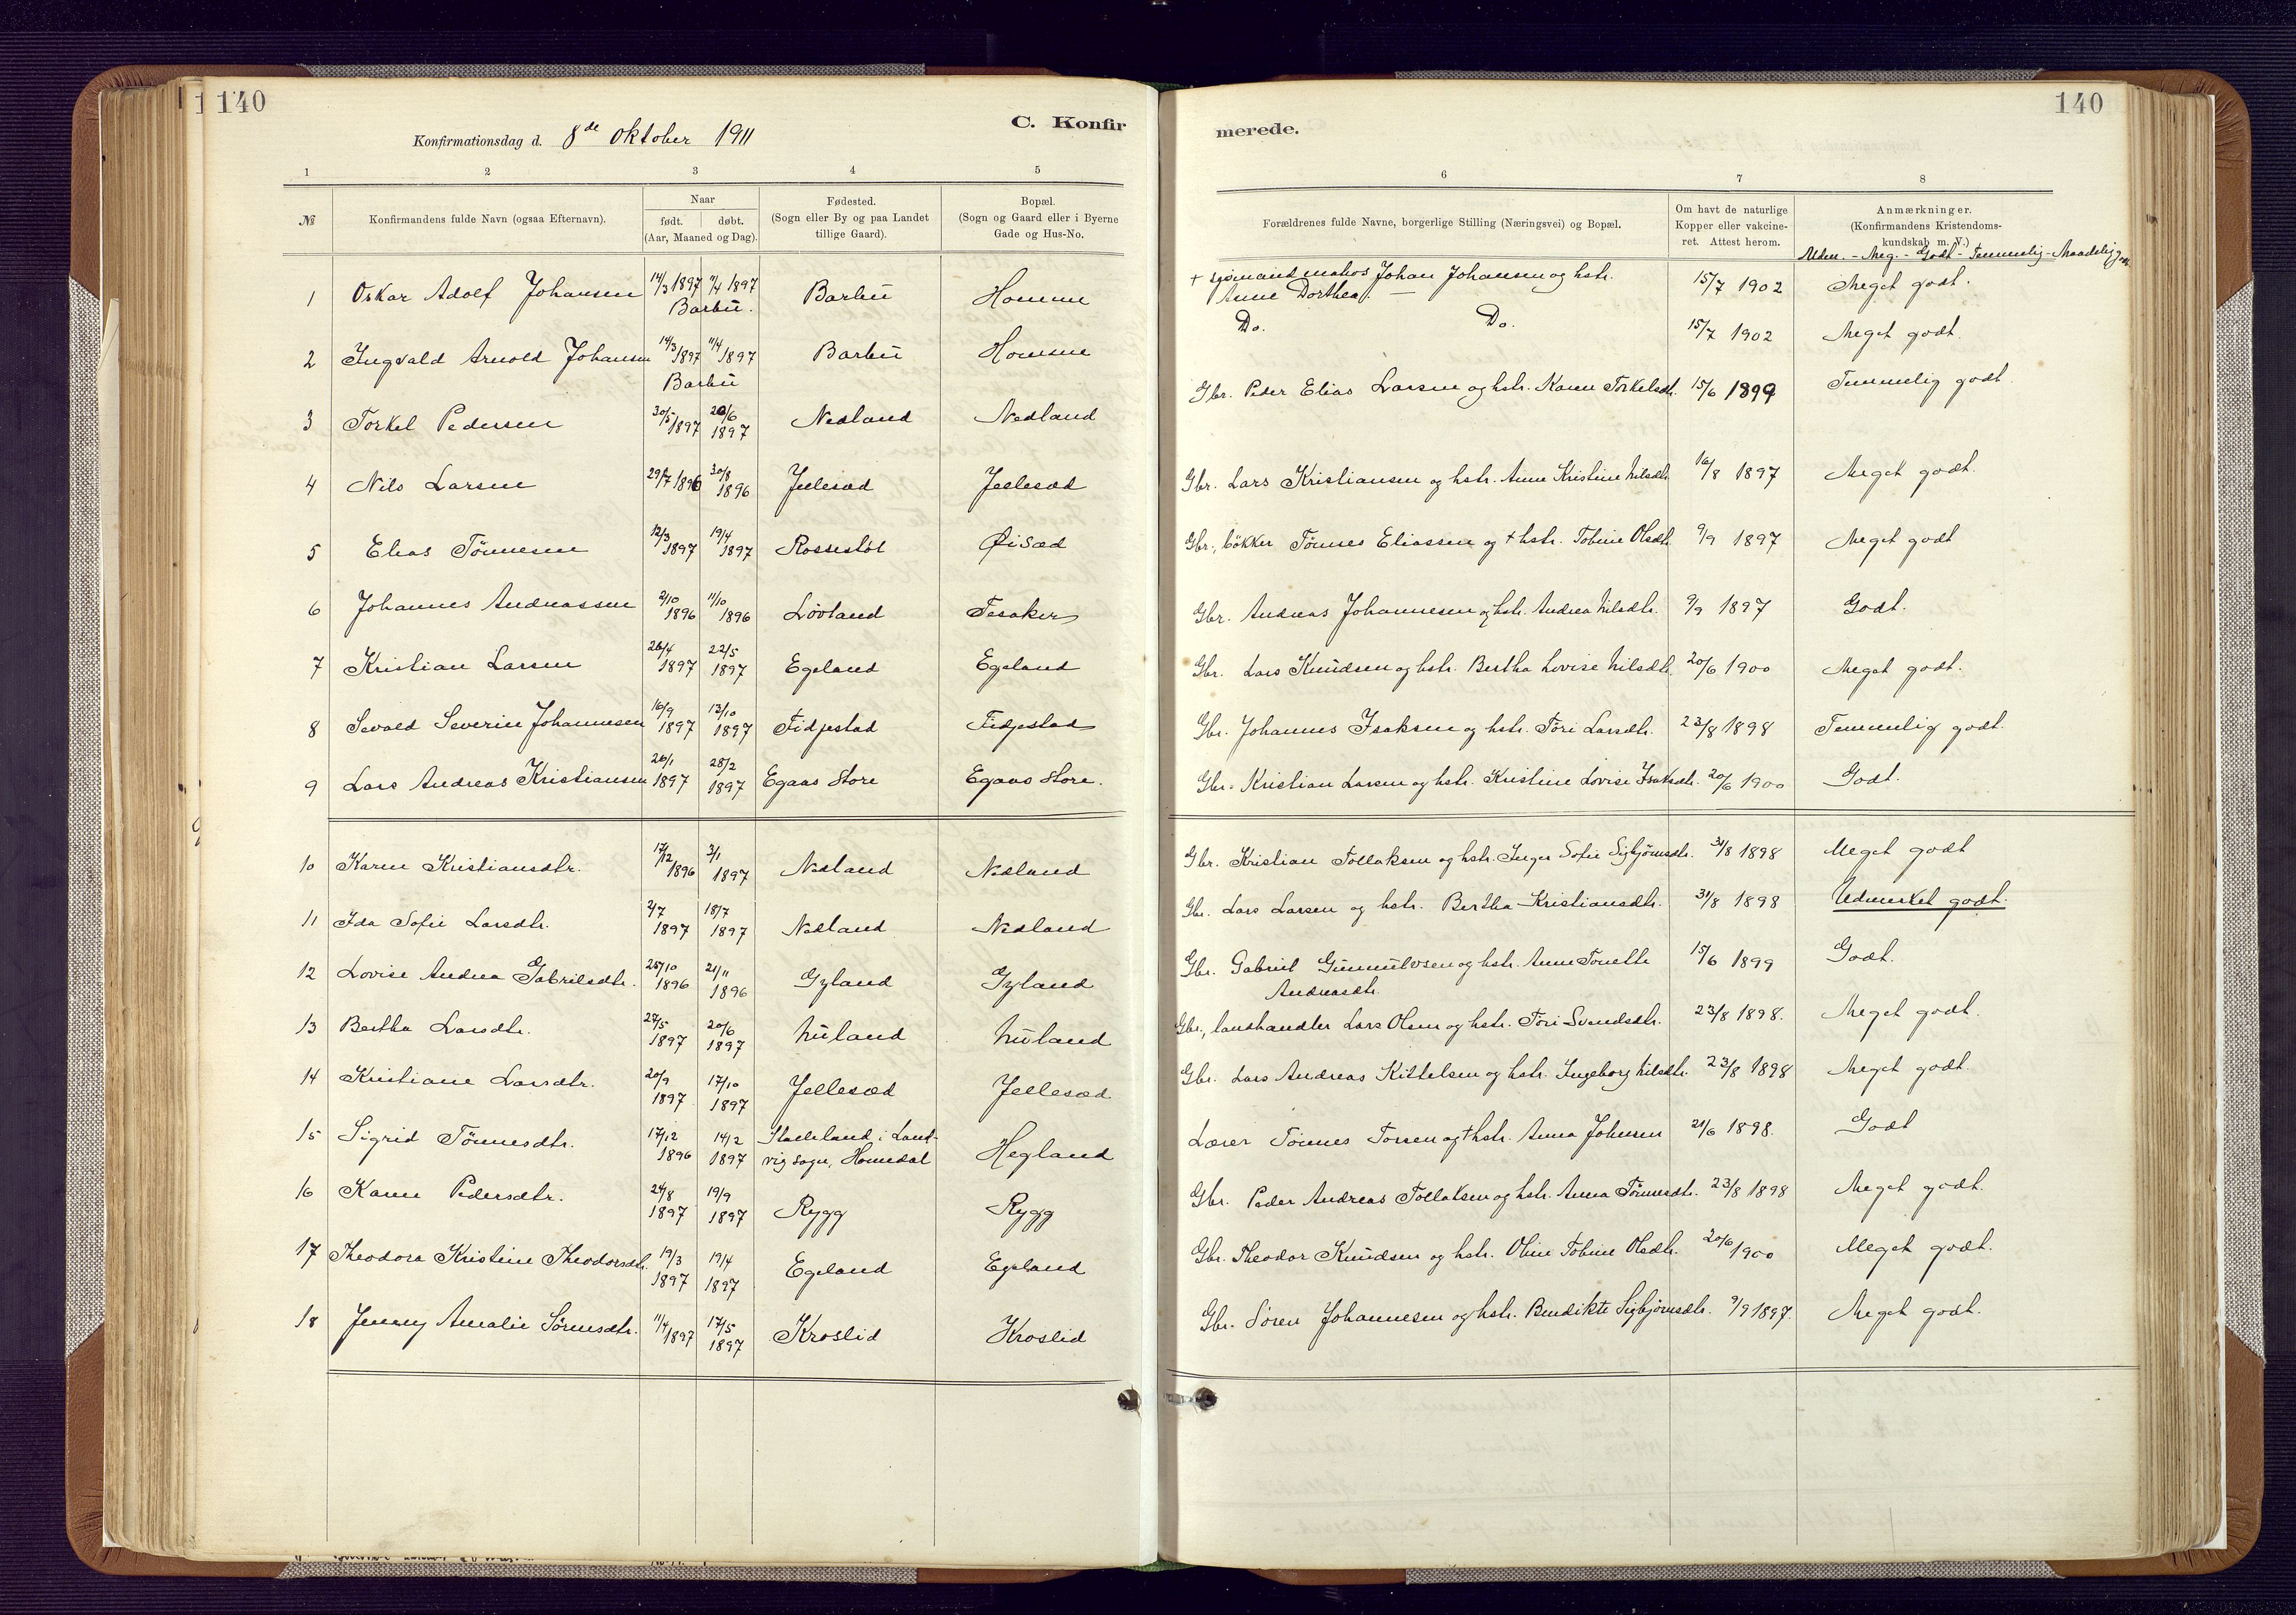 140
C. Konfir
Konfirmationsdag d. 8de Oktober 1911
1 2 3 4 5
№
Konfirmandens fulde Navn (ogsaa Efternavn).
Naar
født. døbt.
(Aar, Maaned og Dag).
Fødested.
(Sogn eller By og paa Landet
tillige Gaard).
Bopæl.
(Sogn og Gaard eller i Byerne
Gade og Hus-No.
1 Oskar Adolf Johansen 14/3 1897 11/4 1897 Barbu Homme
Barbu.
2 Ingvald Arnold Johansen 14/3 1897 11/4 1897 Barbu Homme
Barbu
3 Torkel Pedersen 30/5 1897 20/6 1897 Nedland Nedland
4 Nils Larsen 29/7 1896 30/8 1896 Jellesæd Jellesæd
5 Elias Tönnesen 12/3 1897 19/4 1897 Rossestøl Øisæd
6 Johannes Andreassen 2/10 1896 11/10 1896 Lövland Tesaker
7 Kristian Larsen 26/4 1897 22/5 1897 Egeland Egeland
8 Sevald Severin Johannesen 16/9 1897 13/10 1897 Fidjestad Fidjestad
9 Lars Andreas Kristiansen 26/1 1897 28/2 1897 Egaas Store Egaas Store.
10 Karen Kristiansdtr. 17/12 1896 3/1 1897 Nedland Nedland
11 Ida Sofie Larsdtr. 2/7 1897 18/7 1897 Nedland Nedland
12 Lovise Andrea Gabrielsdtr. 25/10 1896 21/11 1896 Gyland Gyland
13 Bertha Larsdtr. 27/5 1897 20/6 1897 Nuland Nuland
14 Kristiane Larsdtr. 20/9 1897 17/10 1897 Jellesæd Jellesæd
15 Sigrid Tönnesdtr. 17/12 1896 14/2 1897 Staaleland i Land-
vig sogn, Homedal Hegland
16 Karen Pedersdtr. 24/8 1897 19/9 1897 Rygg Rygg
17 Theodora Kristine Theodorsdtr. 19/3 1897 19/4 1897 Egeland Egeland
18 Jenny Amalie Sörensdtr. 11/4 1897 17/5 1897 Kroslid Kroslid
140
merede.
6 7 8
Forældrenes fulde Navne, borgerlige Stilling (Næringsvei) og Bopæl.
Om havt de naturlige
Kopper eller vaccine-
ret. Attest herom.
Anmærkninger.
(Konfirmandens Kristendoms-
kundskab m. V.)
Udm. - Meg. - Godt - Temmelig - Maadelig godt
† sjömand matros Johan Johansen og hstr.
Anne Dorthea. — 15/7 1902 Meget godt.
Do. Do. 15/7 1902 Meget godt.
Gbr. Peder Elias Larsen og hstr. Karen Torkelsdtr. 15/6 1899 Temmelig godt
Gbr. Lars Kristiansen og hstr. Anne Kristine Nilsdtr. 16/8 1897 Meget godt.
Gbr., bökker Tönnes Eliassen og † hstr. Tobine Olsdtr. 9/9 1897 Meget godt
Gbr. Andreas Johannesen og hstr. Andrea Nilsdtr. 9/9 1897 Godt.
Gbr. Lars Knudsen og hstr. Bertha Lovise Nilsdtr. 20/6 1900 Meget godt.
Gbr. Johannes Isaksen og hstr. Töri Larsdtr. 23/8 1898 Temmelig godt.
Gbr. Kristian Larsen og hstr. Kristine Lovise Isaksdtr. 20/6 1900 Godt.
Gbr. Kristian Tollaksen og hstr. Inger Sofie Sigbjörnsdtr. 31/8 1898 Meget godt
Gbr. Lars Larsen og hstr. Bertha Kristiansdtr. 31/8 1898 Udmerket godt.
Gbr. Gabriel Gunnulvsen og hstr. Anne Tonette
Andreasdtr. 15/6 1899 Godt.
Gbr., landhandler Lars Olsen og hstr. Töri Svendsdtr. 23/8 1898. Meget godt.
Gbr. Lars Andreas Kittelsen og hstr. Ingeborg Nilsdtr. 23/8 1898 Meget godt.
Lærer Tönnes Torsen og † hstr. Anna Johnsen 21/6 1898. Godt
Gbr. Peder Andreas Tollaksen og hstr. Anna Tönnesdtr. 23/8 1898 Meget godt.
Gbr. Theodor Knudsen og hstr. Oline Tobine Olsdtr. 20/6 1900 Meget godt.
Gbr. Sören Johannesen og hstr. Bendikte Sigbjörnsdtr. 9/9 1897. Meget godt.